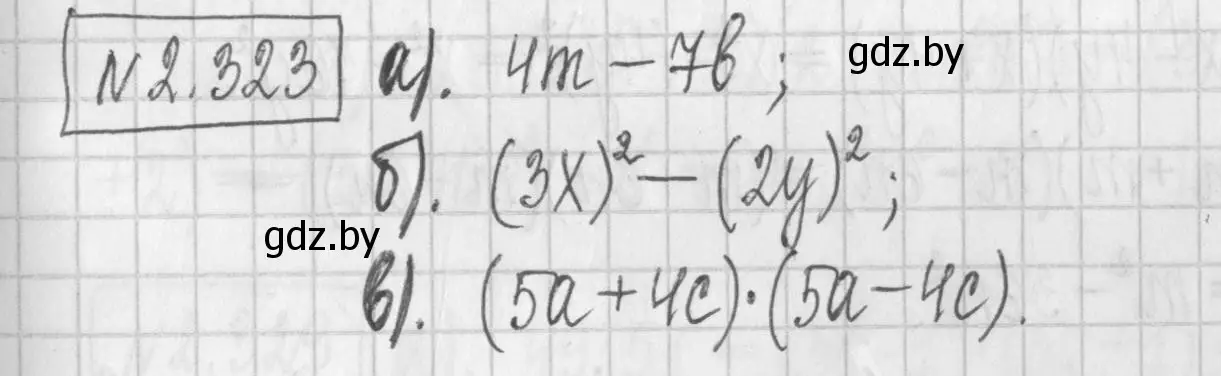 №2.323 а). 4m – 7b ; gdz.by
б). (3x)² – (2y)² ;
gdz.by
в). (5a + 4c)·(5a – 4c).